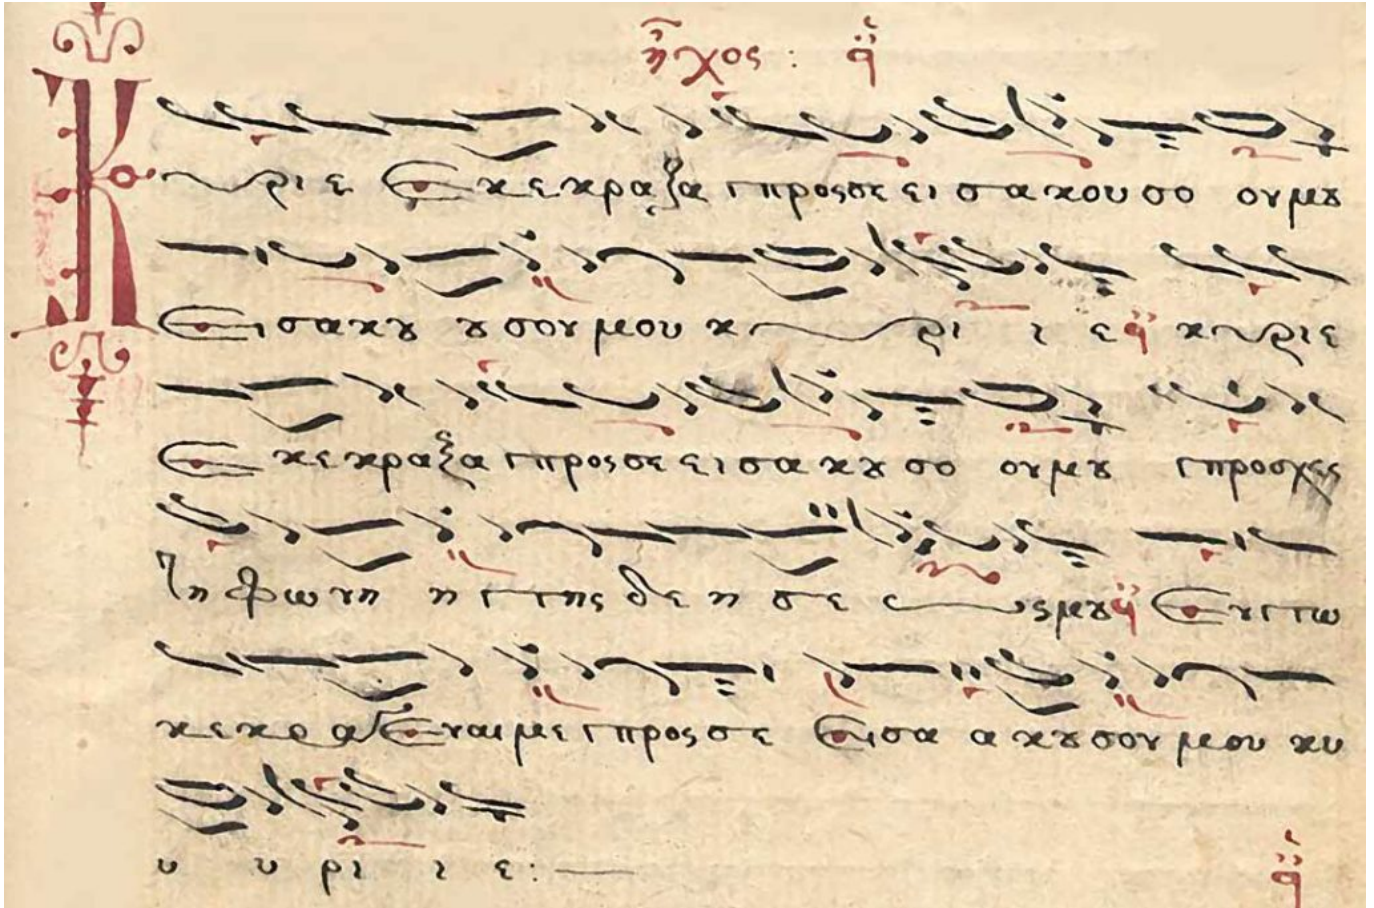 ἦχος : q̈
Κύριε Εκεκραξα προςσε εισακουσο ουμȣ
Εισακȣ ȣσουμου κυρι ι ε q̈ κυριε
Εκεκραξα προςσε εισακȣσο ουμȣ προσχες
τη φωνη η της δε η σε ωςμȣ q̈ Εντω
κεκρα Εναιμε προςσε Εισα ακȣσουμου κυ
υ υ ρι ι ε : —
q̈